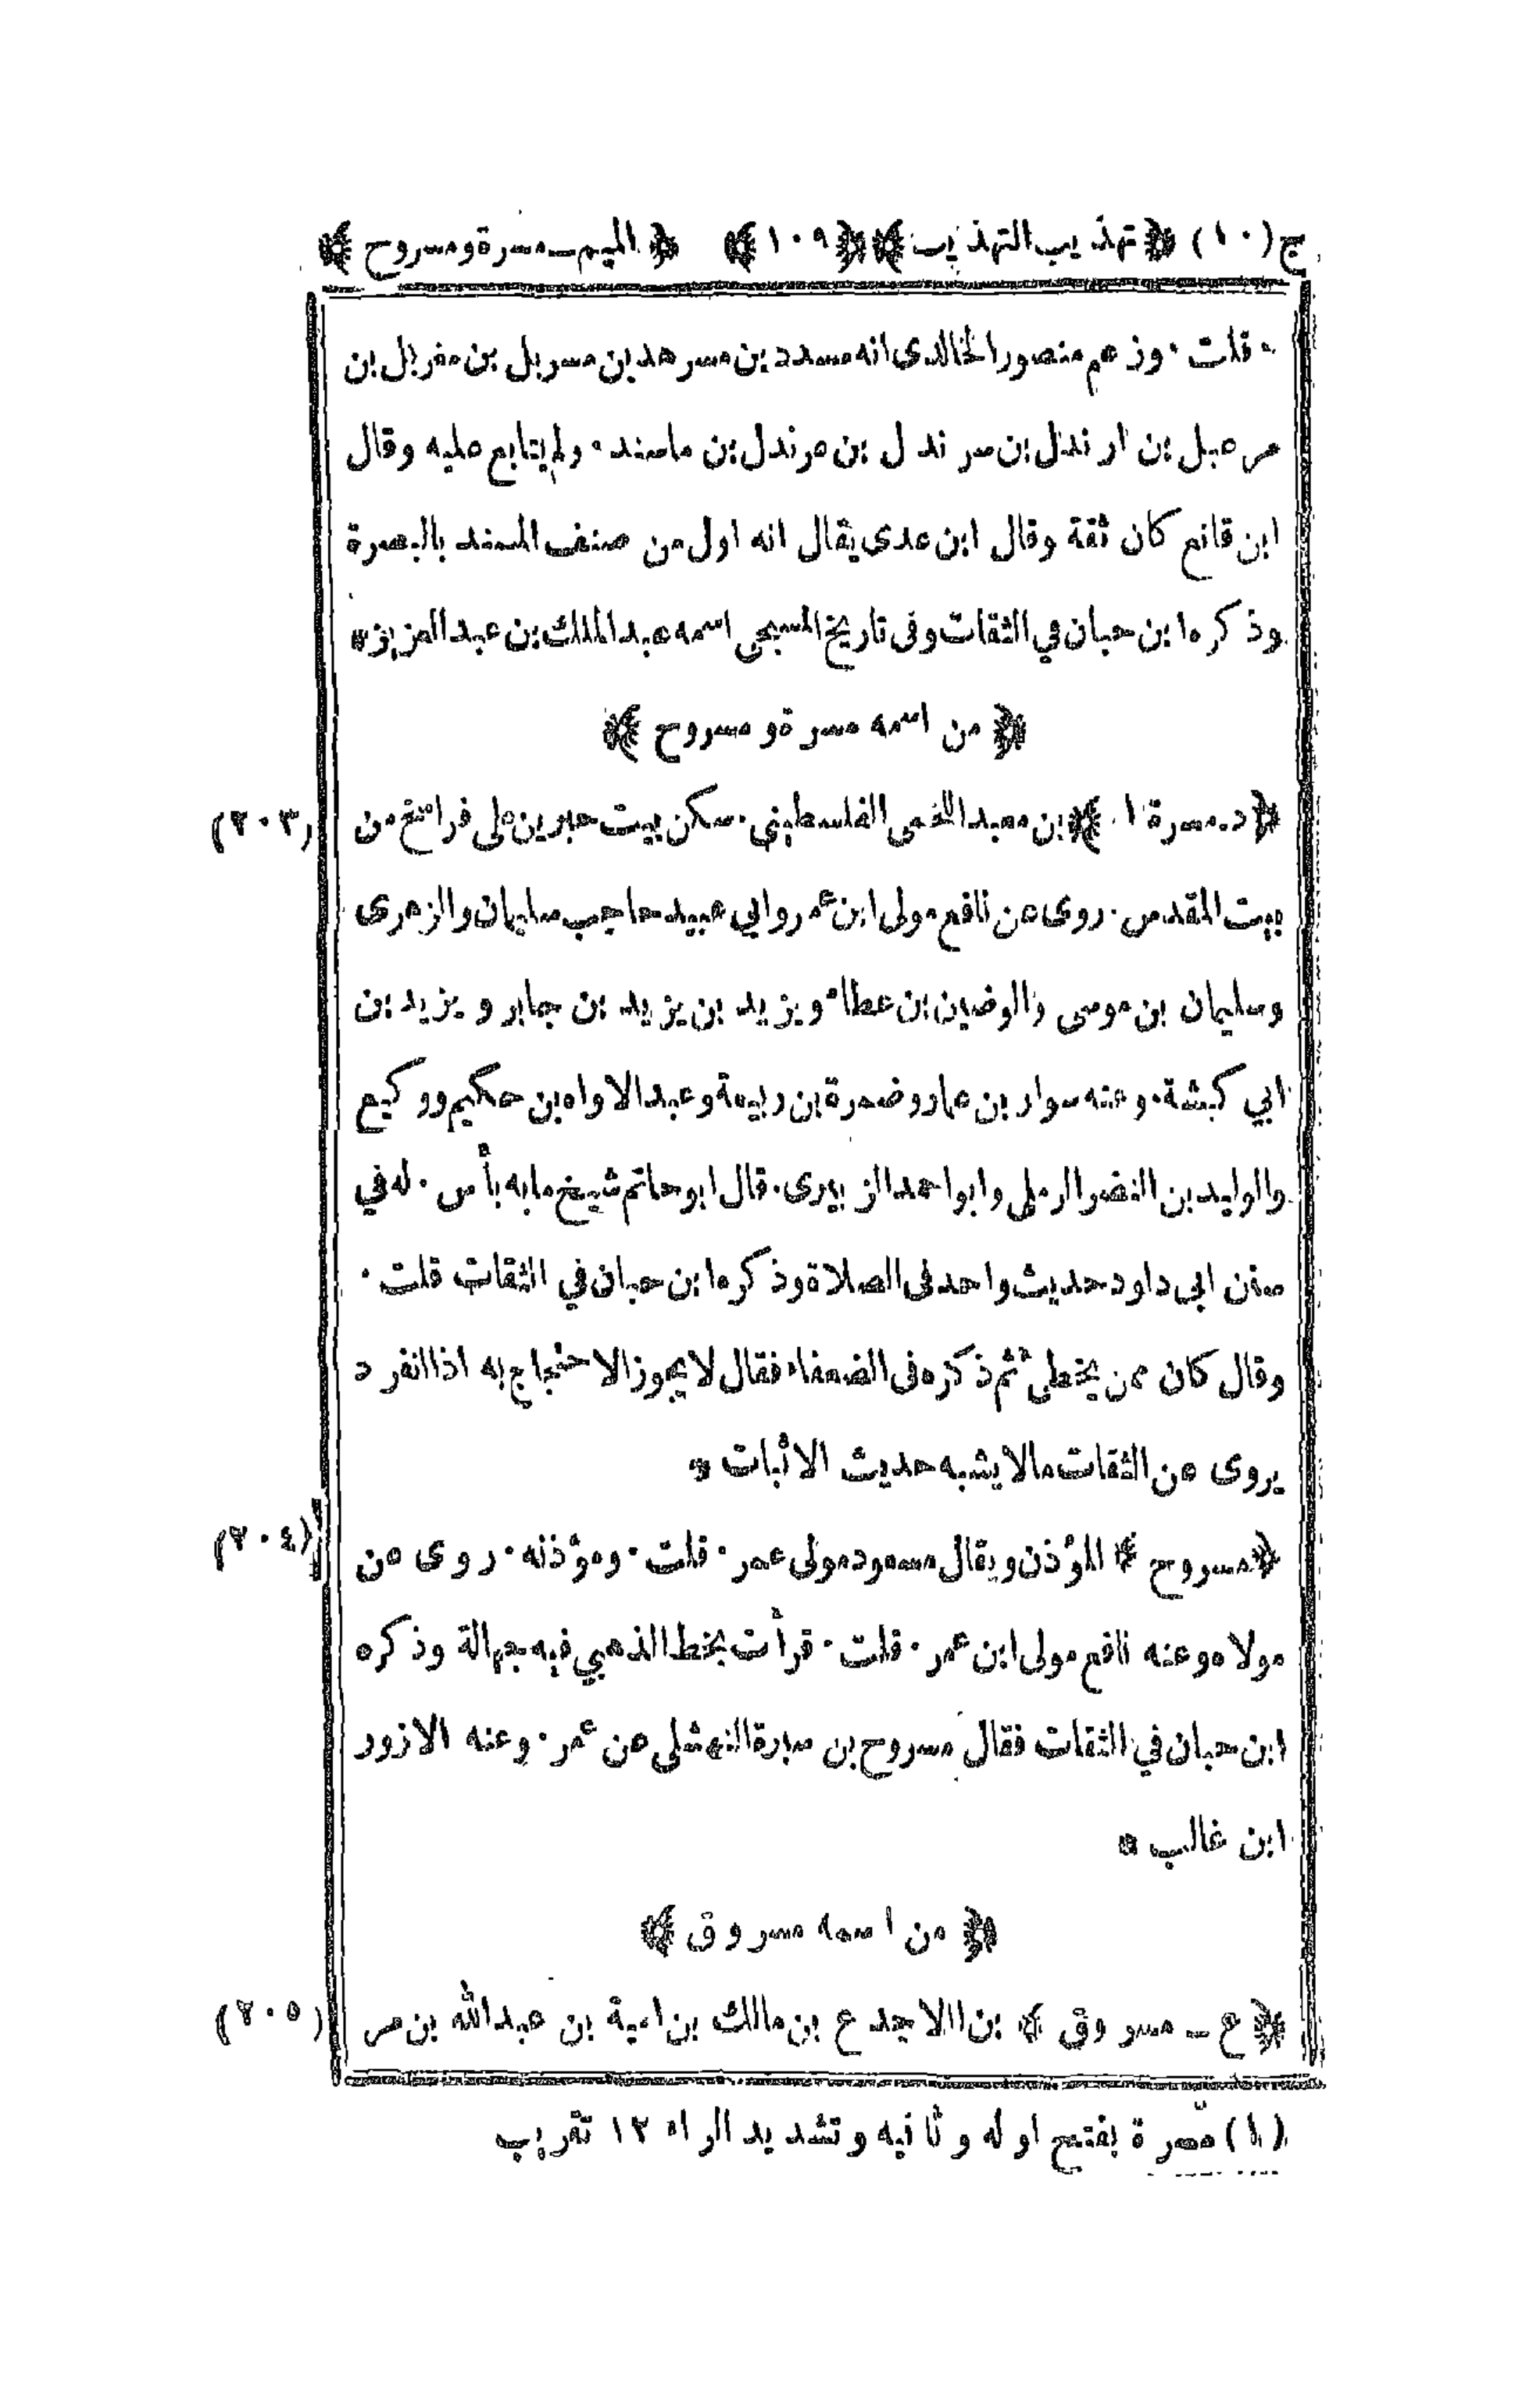 ج (١٠) ﴿ تهذيب التهذيب ﴾ ﴿١٠٩﴾ ﴿ الميم - مسرة ومسروح ﴾
· قلت · وزعم منصور الخالدى انه مسدد بن مسرهد بن مسربل بن مغربل بن
مرعبل بن ارندل بن سرندل بن عرندل بن ماسند · ولم يتابع عليه وقال
ابن قانع كان ثقة وقال ابن عدى يقال انه اول من صنف المسند بالبصرة
وذكره ابن حبان في الثقات وفى تاريخ المسبحى اسمه عبد الملك بن عبد العزيز *
﴿ من اسمه مسرة ومسروح ﴾
(٢٠٣) ﴿ د. مسرة ١ ﴾ بن معبد اللخمى الفلسطيني · سكن بيت حبرين على فراسخ من
بيت المقدس · روى عن نافع مولى ابن عمر وابي عبيد حاجب سليمان والزهرى
وسليمان بن موسى والوضين بن عطاء ويزيد بن يزيد بن جابر ويزيد بن
ابي كبشة · وعنه سوار بن عمار وضمرة بن ربيعة وعبد الاواه بن حكيم ووكيع
والوليد بن النضر الرملى وابو احمد الزبيرى · قال ابو حاتم شيخ ما به بأس · له في
سنن ابى داود حديث واحد فى الصلاة وذكره ابن حبان في الثقات قلت ·
وقال كان ممن يخطئ ثم ذكره فى الضعفاء فقال لا يجوز الاحتجاج به اذا انفرد
يروى عن الثقات ما لا يشبه حديث الاثبات *
(٢٠٤) ﴿ مسروح ﴾ المؤذن ويقال مسعود مولى عمر · قلت · ومؤذنه · روى عن
مولاه وعنه نافع مولى ابن عمر · قلت · قرأت بخط الذهبي فيه جهالة وذكره
ابن حبان في الثقات فقال مسروح بن سبرة النهشلى عن عمر · وعنه الازور
ابن غالب *
﴿ من اسمه مسروق ﴾
(٢٠٥) ﴿ ع - مسروق ﴾ بن الاجدع بن مالك بن امية بن عبد الله بن مر
(١) مسرة بفتح اوله وثانيه وتشديد الراء ١٢ تقريب